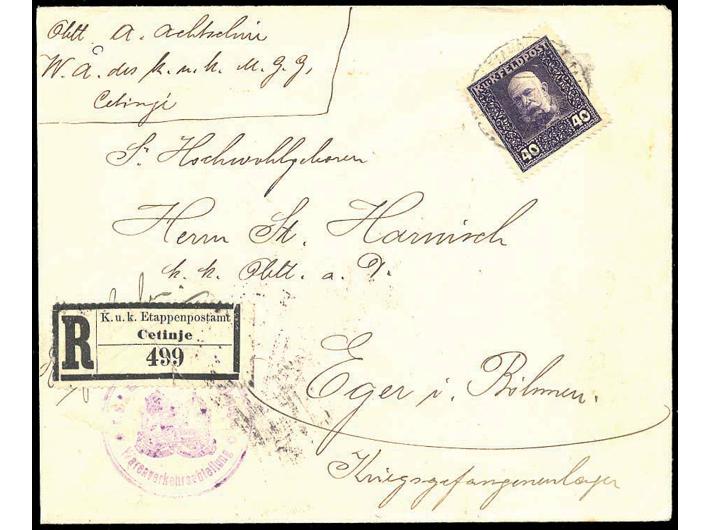 Oblt. A. Achtschin
W. A. des k. u. k. M. G. G,
Cetinje
K.U.K. FELDPOST
40 40
Sr Hochwohlgeboren
Herrn St. Harnisch
k. k. Oblt. a. D.
R
K. u. k. Etappenpostamt
Cetinje
499
Eger i. Böhmen.
Warenverkehrsabteilung
Kriegsgefangenenlager